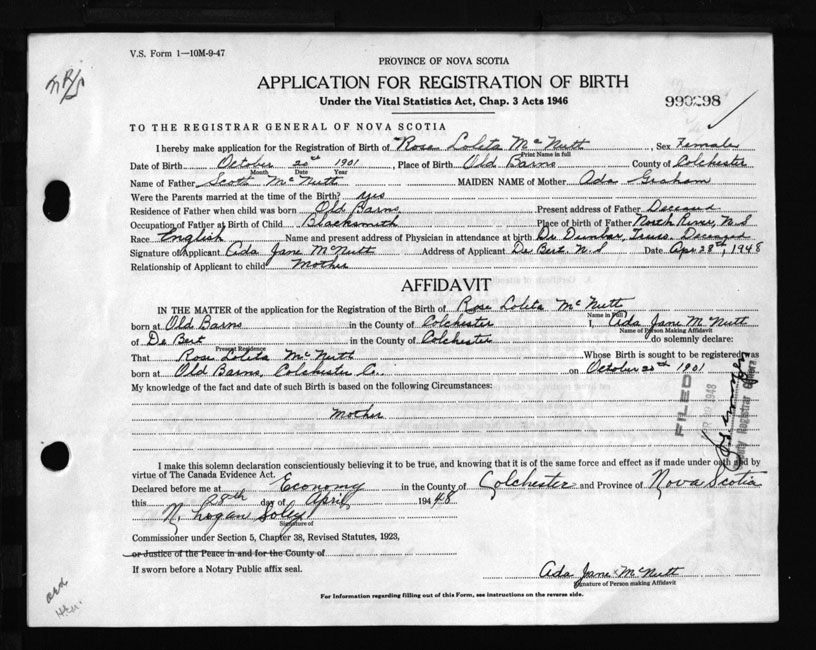 V.S. Form 1—10M-9-47
PROVINCE OF NOVA SCOTIA
APPLICATION FOR REGISTRATION OF BIRTH
Under the Vital Statistics Act, Chap. 3 Acts 1946
990298
TO THE REGISTRAR GENERAL OF NOVA SCOTIA
I hereby make application for the Registration of Birth of Rose Loleta McNutt, Sex Female
Print Name in full
Date of Birth October 20th 1901, Place of Birth Old Barns County of Colchester
Month Date Year
Name of Father Scott McNutt MAIDEN NAME of Mother Ada Graham
Were the Parents married at the time of the Birth? yes
Residence of Father when child was born Old Barns Present address of Father Deceased
Occupation of Father at Birth of Child Blacksmith Place of birth of Father North River, N.S
Race English Name and present address of Physician in attendance at birth Dr Dunbar, Truro. Deceased
Signature of Applicant Ada Jane McNutt Address of Applicant De Bert N.S Date Apr 28th, 1948
Relationship of Applicant to child Mother
AFFIDAVIT
IN THE MATTER of the application for the Registration of the Birth of Rose Loleta McNutt
Name in Full
born at Old Barns in the County of Colchester I, Ada Jane McNutt
Name of Person Making Affidavit
of De Bert in the County of Colchester do solemnly declare:
Present Residence
That Rose Loleta McNutt Whose Birth is sought to be registered, was
born at Old Barns, Colchester Co. on October 20th 1901
My knowledge of the fact and date of such Birth is based on the following Circumstances:
Mother
FILED
1948
Registrar General
I make this solemn declaration conscientiously believing it to be true, and knowing that it is of the same force and effect as if made under oath and by
virtue of The Canada Evidence Act.
Declared before me at Economy in the County of Colchester and Province of Nova Scotia
this 28th day of April 194 48
N. Logan Soley
Signature of
Commissioner under Section 5, Chapter 38, Revised Statutes, 1923,
or Justice of the Peace in and for the County of
If sworn before a Notary Public affix seal.
Ada Jane McNutt
Signature of Person making Affidavit
For Information regarding filling out of this Form, see instructions on the reverse side.